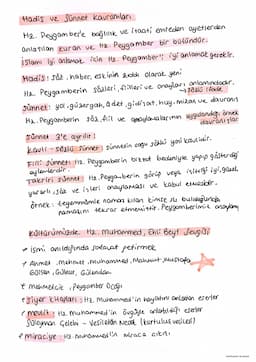 Hadis ve Sünnet Kavramları
Hz. Peygamber'e bağlılık ve itaati emreden ayetlerden
anlatılan kuran ve Hz. Peygamber bir bütündür.
İslamı iyi anlamak için Hz. Peygamber'i iyi anlamak gerekir.
Hadis: söz, haber, eskinin zıddı olarak yeni
Hz. Peygamberin sözleri, fiilleri ve onayları anlamındadır.
Sünnet: yol, güzergah, adet, gidişat, huy, mizaç ve davranış
Hz. Peygamberin söz, fiil ve onaylamalarının uygulandığı örnek
davranışlar
Sünnet 3'e ayrılır:
Kavli - Sözlü Sünnet
Fiili Sünnet: Hz. Peygamberin bizzat bedeniyle yapıp gösterdiği
eylemlerdir.
Takriri Sünnet: Hz. Peygamberin görüp veya işittiği iyi, güzel
yararlı, söz ve işleri onaylaması ve kabul etmesidir.
Örnek: teyemmümle namaz kılan kimse su bulduğunda
namazını tekrar etmemiştir. Peygamberimiz onaylamış
Kültürümüzde Hz. Muhammed, Ehli Beyt Sevgisi
İsmi anıldığında salavat getirmek
Ahmet, Mehmet, Muhammed, Mahmut, Mustafa
Gülsen, Gülnur, Gülendam
Mehmetçik, Peygamber Ocağı
Siyer kitapları: Hz. Muhammed'in hayatını anlatan eserler
mevlit: Hz. Muhammed'in övgüyle anlatıldığı eserler
Süleyman Çelebi - Vesiletün Necat (kurtuluş vesilesi)
miraciye: Hz. Muhammed'in miraca